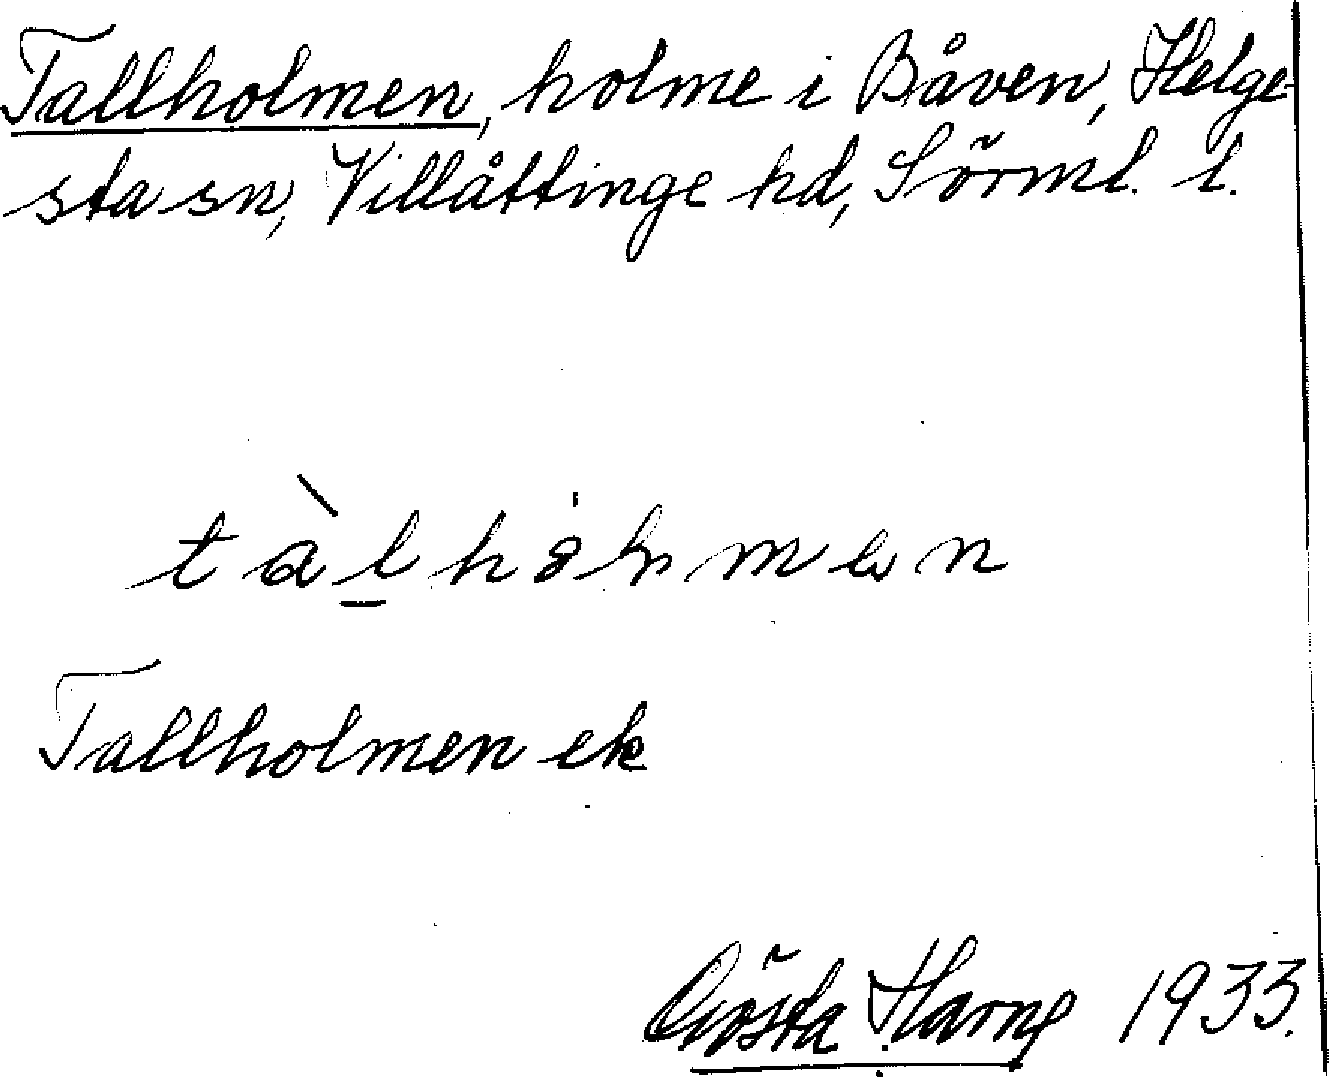 Tallholmen, holme i Båven, Helge-
sta sn, Villåttinge hd, Sörml. l.
Tallholmen ek
Gösta Harng 1933.